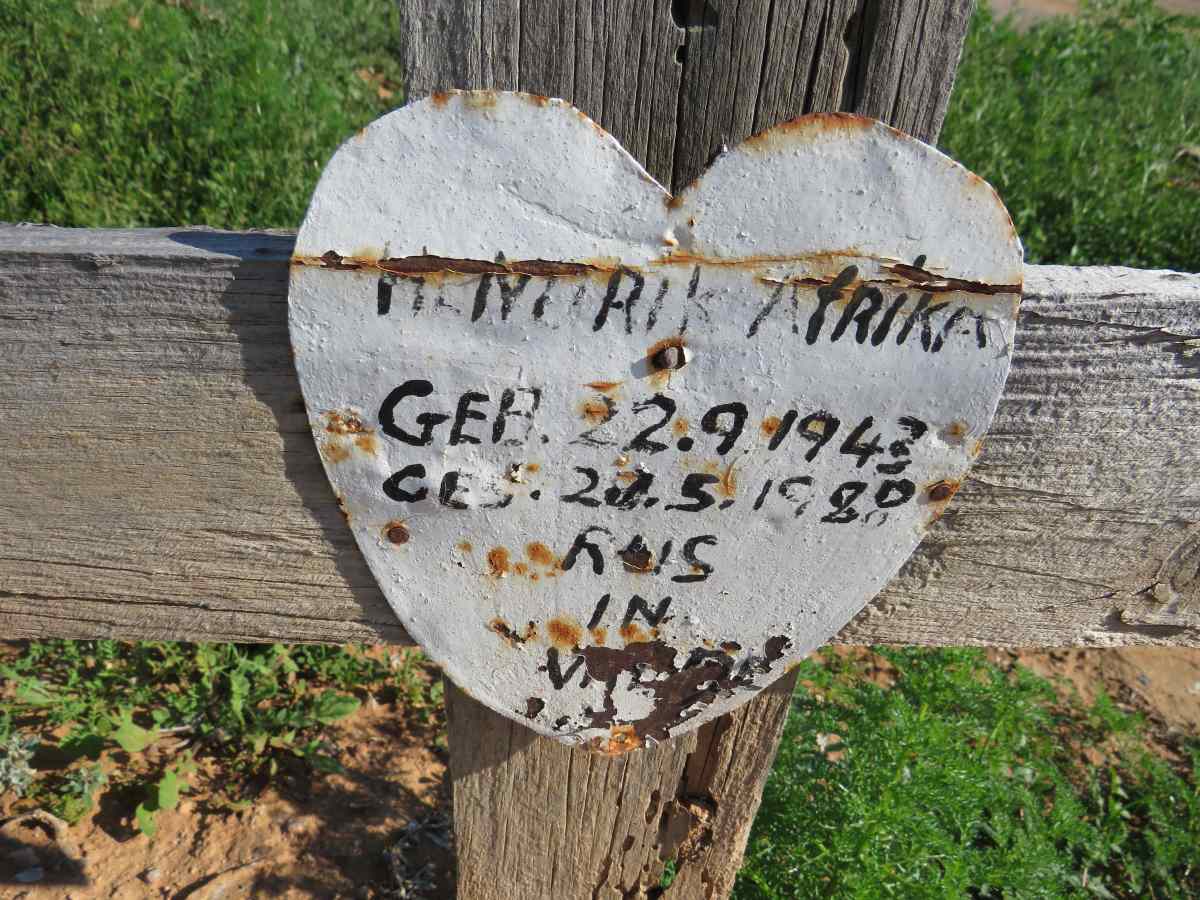 HENDRIK AFRIKA
GEB. 22.9.1943
GES. 20.5.1980
RUS
IN